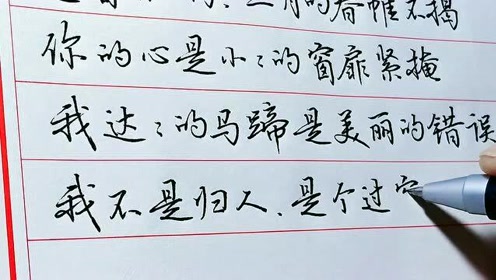 月的春帷不揭
你的心是小〻的窗扉紧掩
我达〻的马蹄是美丽的错误
我不是归人、是个过